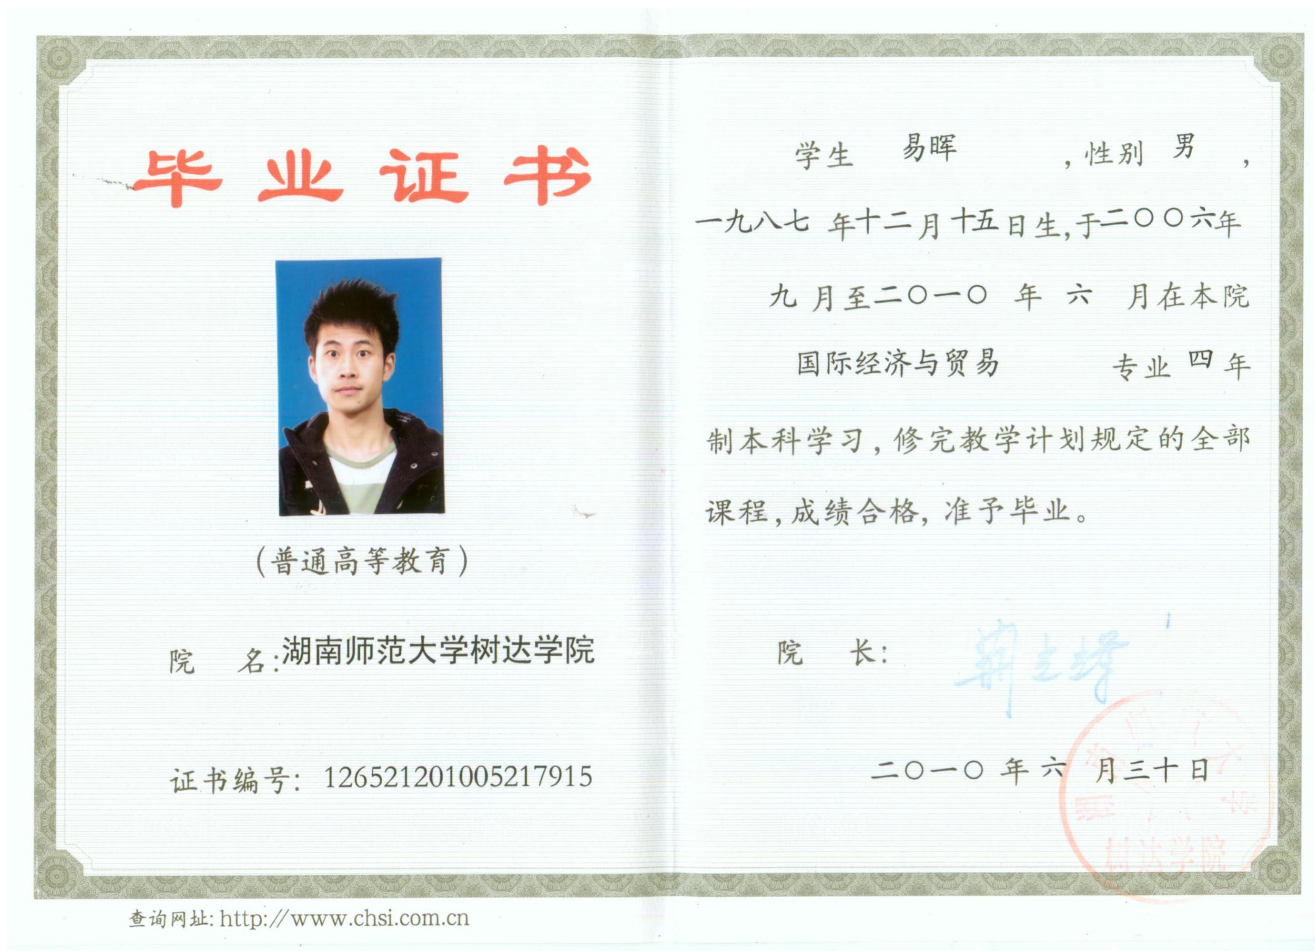 毕业证书
(普通高等教育)
院 名:湖南师范大学树达学院
证书编号: 126521201005217915
查询网址: http://www.chsi.com.cn
学生 易晖 ,性别 男 ,
一九八七 年十二月十五日生,于二〇〇六年
九 月至二〇一〇 年 六 月在本院
国际经济与贸易 专业 四 年
制本科学习,修完教学计划规定的全部
课程,成绩合格,准予毕业。
院 长:
二〇一〇 年 六 月三十日
树达学院